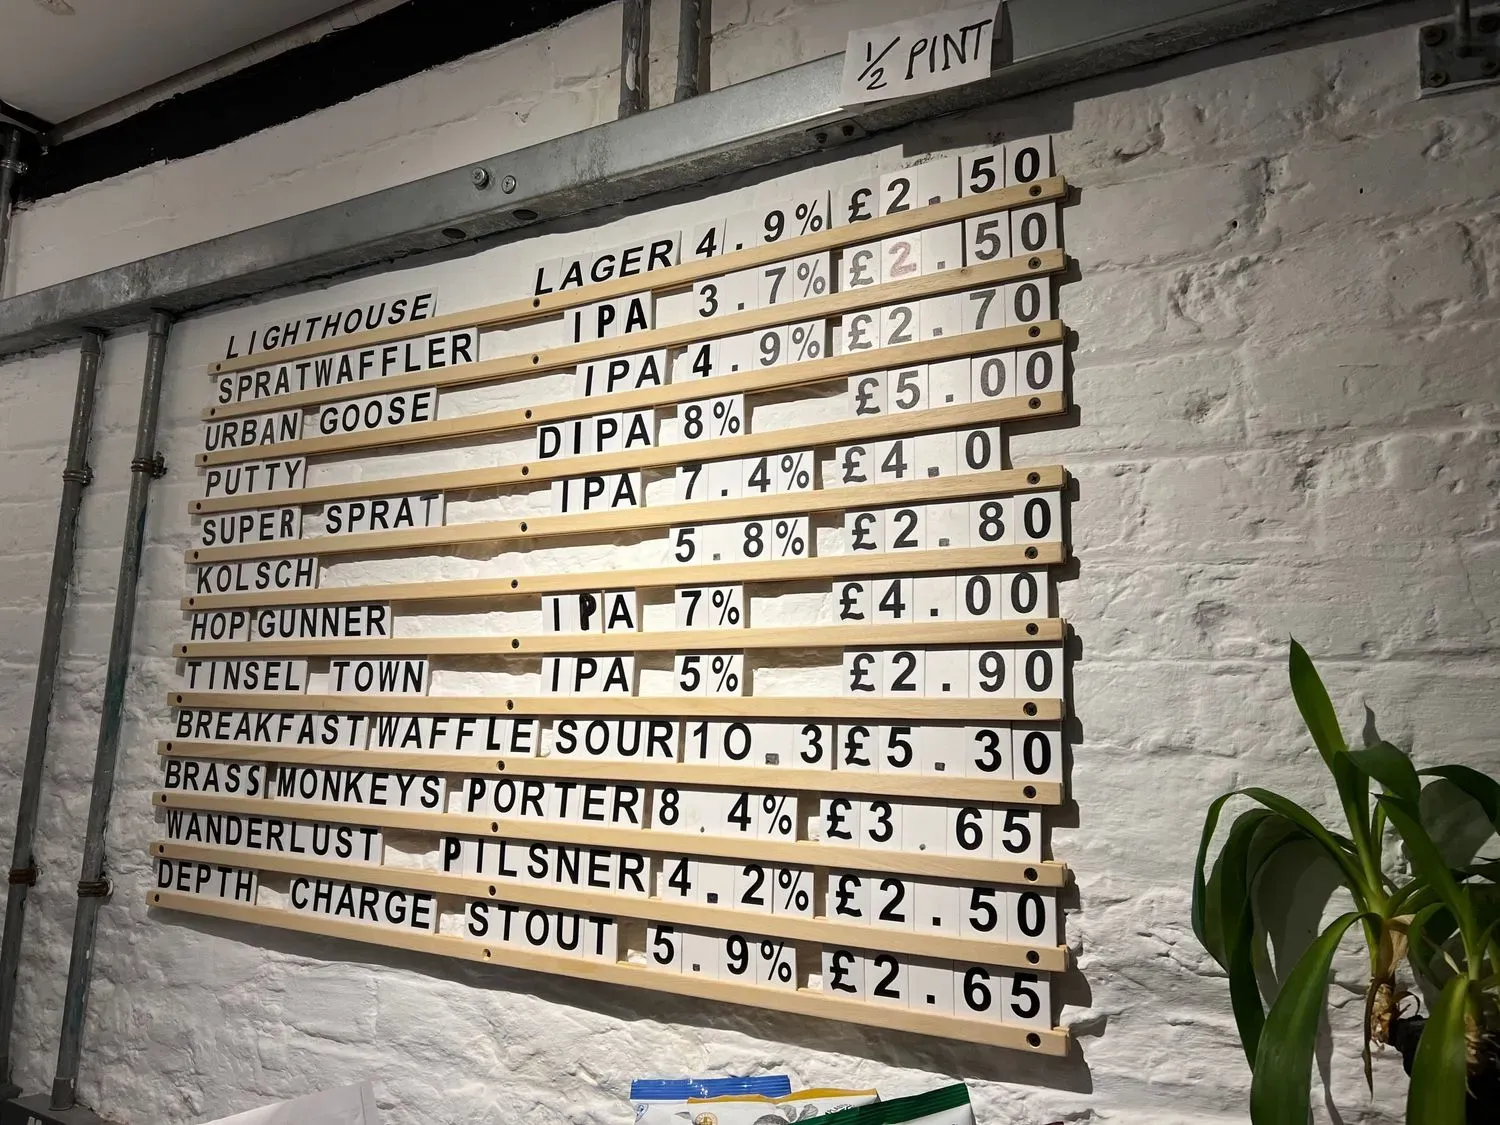 1/2 PINT
LIGHTHOUSE LAGER 4.9% £2.50
SPRATWAFFLER IPA 3.7% £2.50
URBAN GOOSE IPA 4.9% £2.70
PUTTY DIPA 8% £5.00
SUPER SPRAT IPA 7.4% £4.0
KOLSCH 5.8% £2.80
HOP GUNNER IPA 7% £4.00
TINSEL TOWN IPA 5% £2.90
BREAKFAST WAFFLE SOUR 10.3 £5.30
BRASS MONKEYS PORTER 8.4% £3.65
WANDERLUST PILSNER 4.2% £2.50
DEPTH CHARGE STOUT 5.9% £2.65